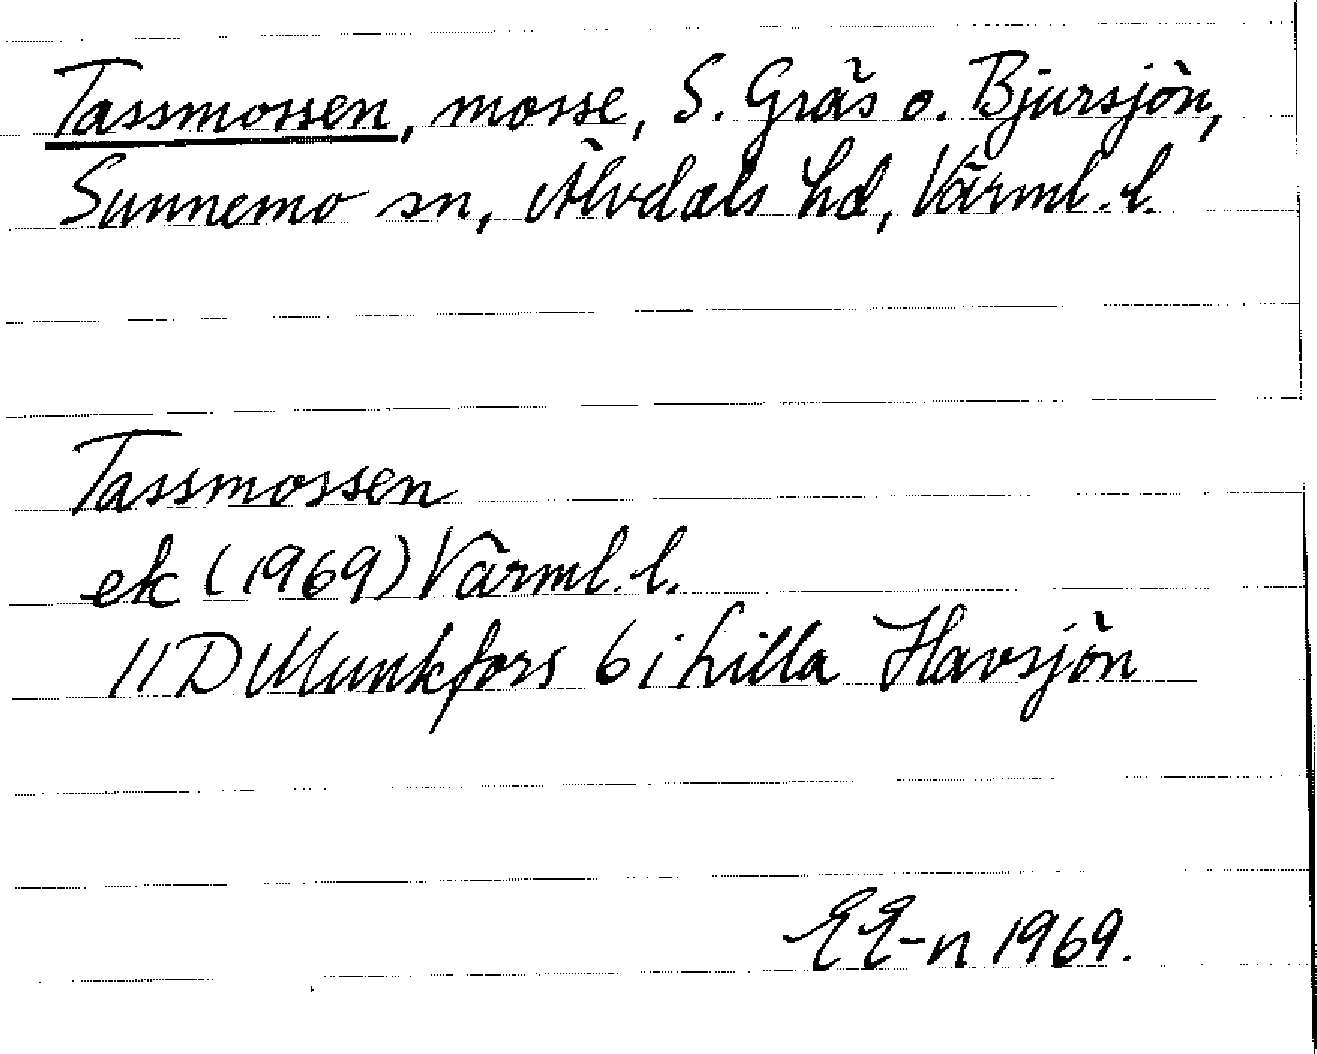 Tassmossen, mosse, S. Gräs o. Bjursjön,
Sunnemo sn, Älvdals hd, Värml. l.
Tassmossen
ek (1969) Värml. l.
11 D Munkfors 6 i Lilla Havsjön
EE-n 1969.